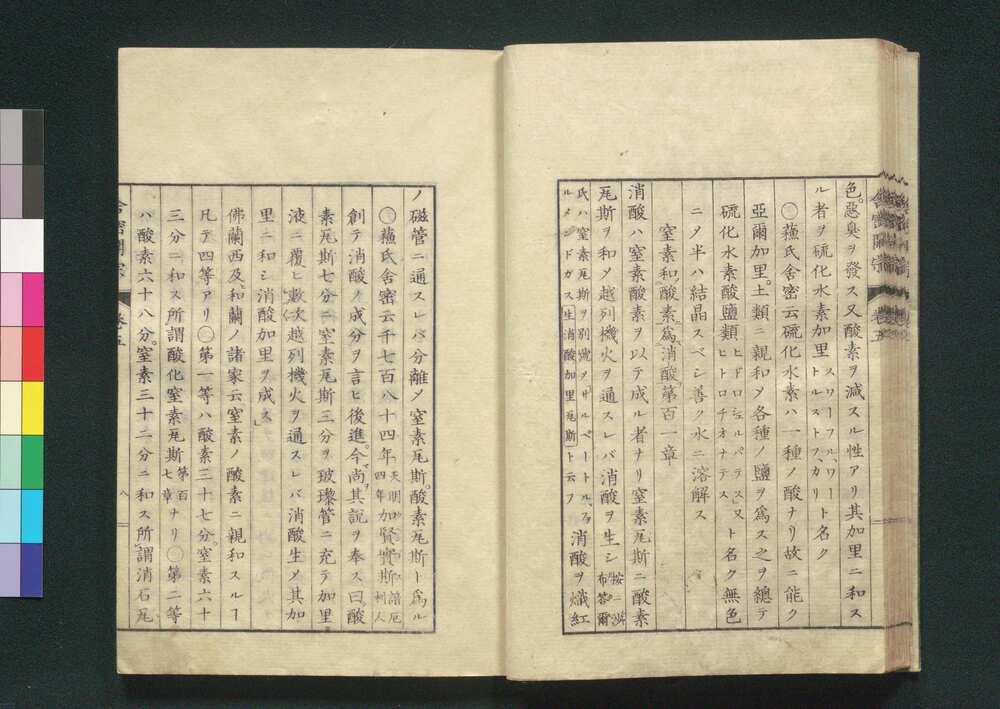 色惡臭ヲ發ス又酸素ヲ減スル性アリ其加里ニ和ス
ル者ヲ硫化水素加里スワーフル、ワートルストフ、カリト名ク
〇蘓氏舍密云硫化水素ハ一種ノ酸ナリ故ニ能ク
亞爾加里土類ニ親和メ各種ノ鹽ヲ爲ス之ヲ總テ
硫化水素酸鹽類ヒドロシェルパテス又ヒトロチオナテスト名ク無色
ニメ半ハ結晶スベシ善ク水ニ溶解ス
窒素和酸素爲消酸第百一章
消酸ハ窒素酸素ヲ以テ成ル者ナリ窒素瓦斯ニ酸素
瓦斯ヲ和メ越列機火ヲ通スレバ消酸ヲ生シ
ト云フ消酸ヲ熾紅
ノ磁管ニ通スレバ分離メ窒素瓦斯酸素瓦斯ト爲ル
〇蘓氏舍密云千七百八十四年天明四年加賢實斯諳厄利人
創テ消酸ノ成分ヲ言ヒ後進今尚其説ヲ奉ス曰酸
素瓦斯七分ニ窒素瓦斯三分ヲ玻瓈管ニ充テ加里
液ニ覆ヒ數次越列機火ヲ通スレバ消酸生メ其加
里ニ和シ消酸加里ヲ成ス
佛蘭西及和蘭ノ諸家云窒素ノ酸素ニ親和スルヿ
凡テ四等アリ〇第一等ハ酸素三十七分窒素六十
三分ニ和ス所謂酸化窒素瓦斯第百七章ナリ〇第二等
ハ酸素六十八分窒素三十二分ニ和ス所謂消石瓦
八